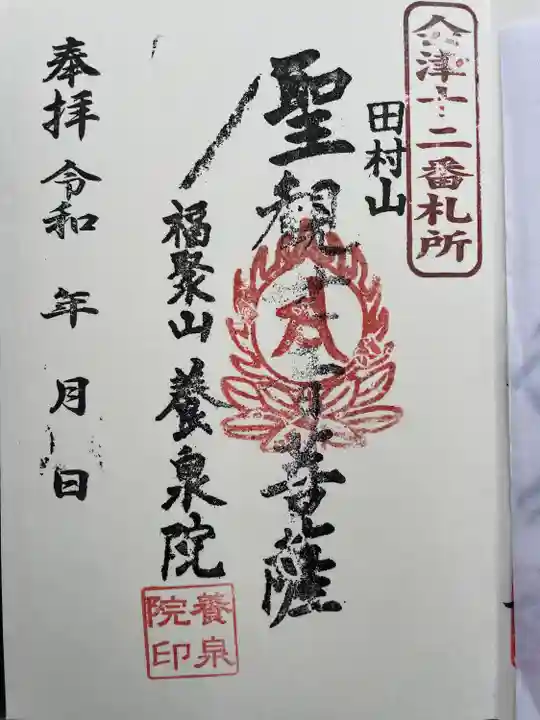 会津十二番札所
田村山
聖観世音菩薩
福聚山 養泉院
奉拝 令和 年 月 日
養泉
院印